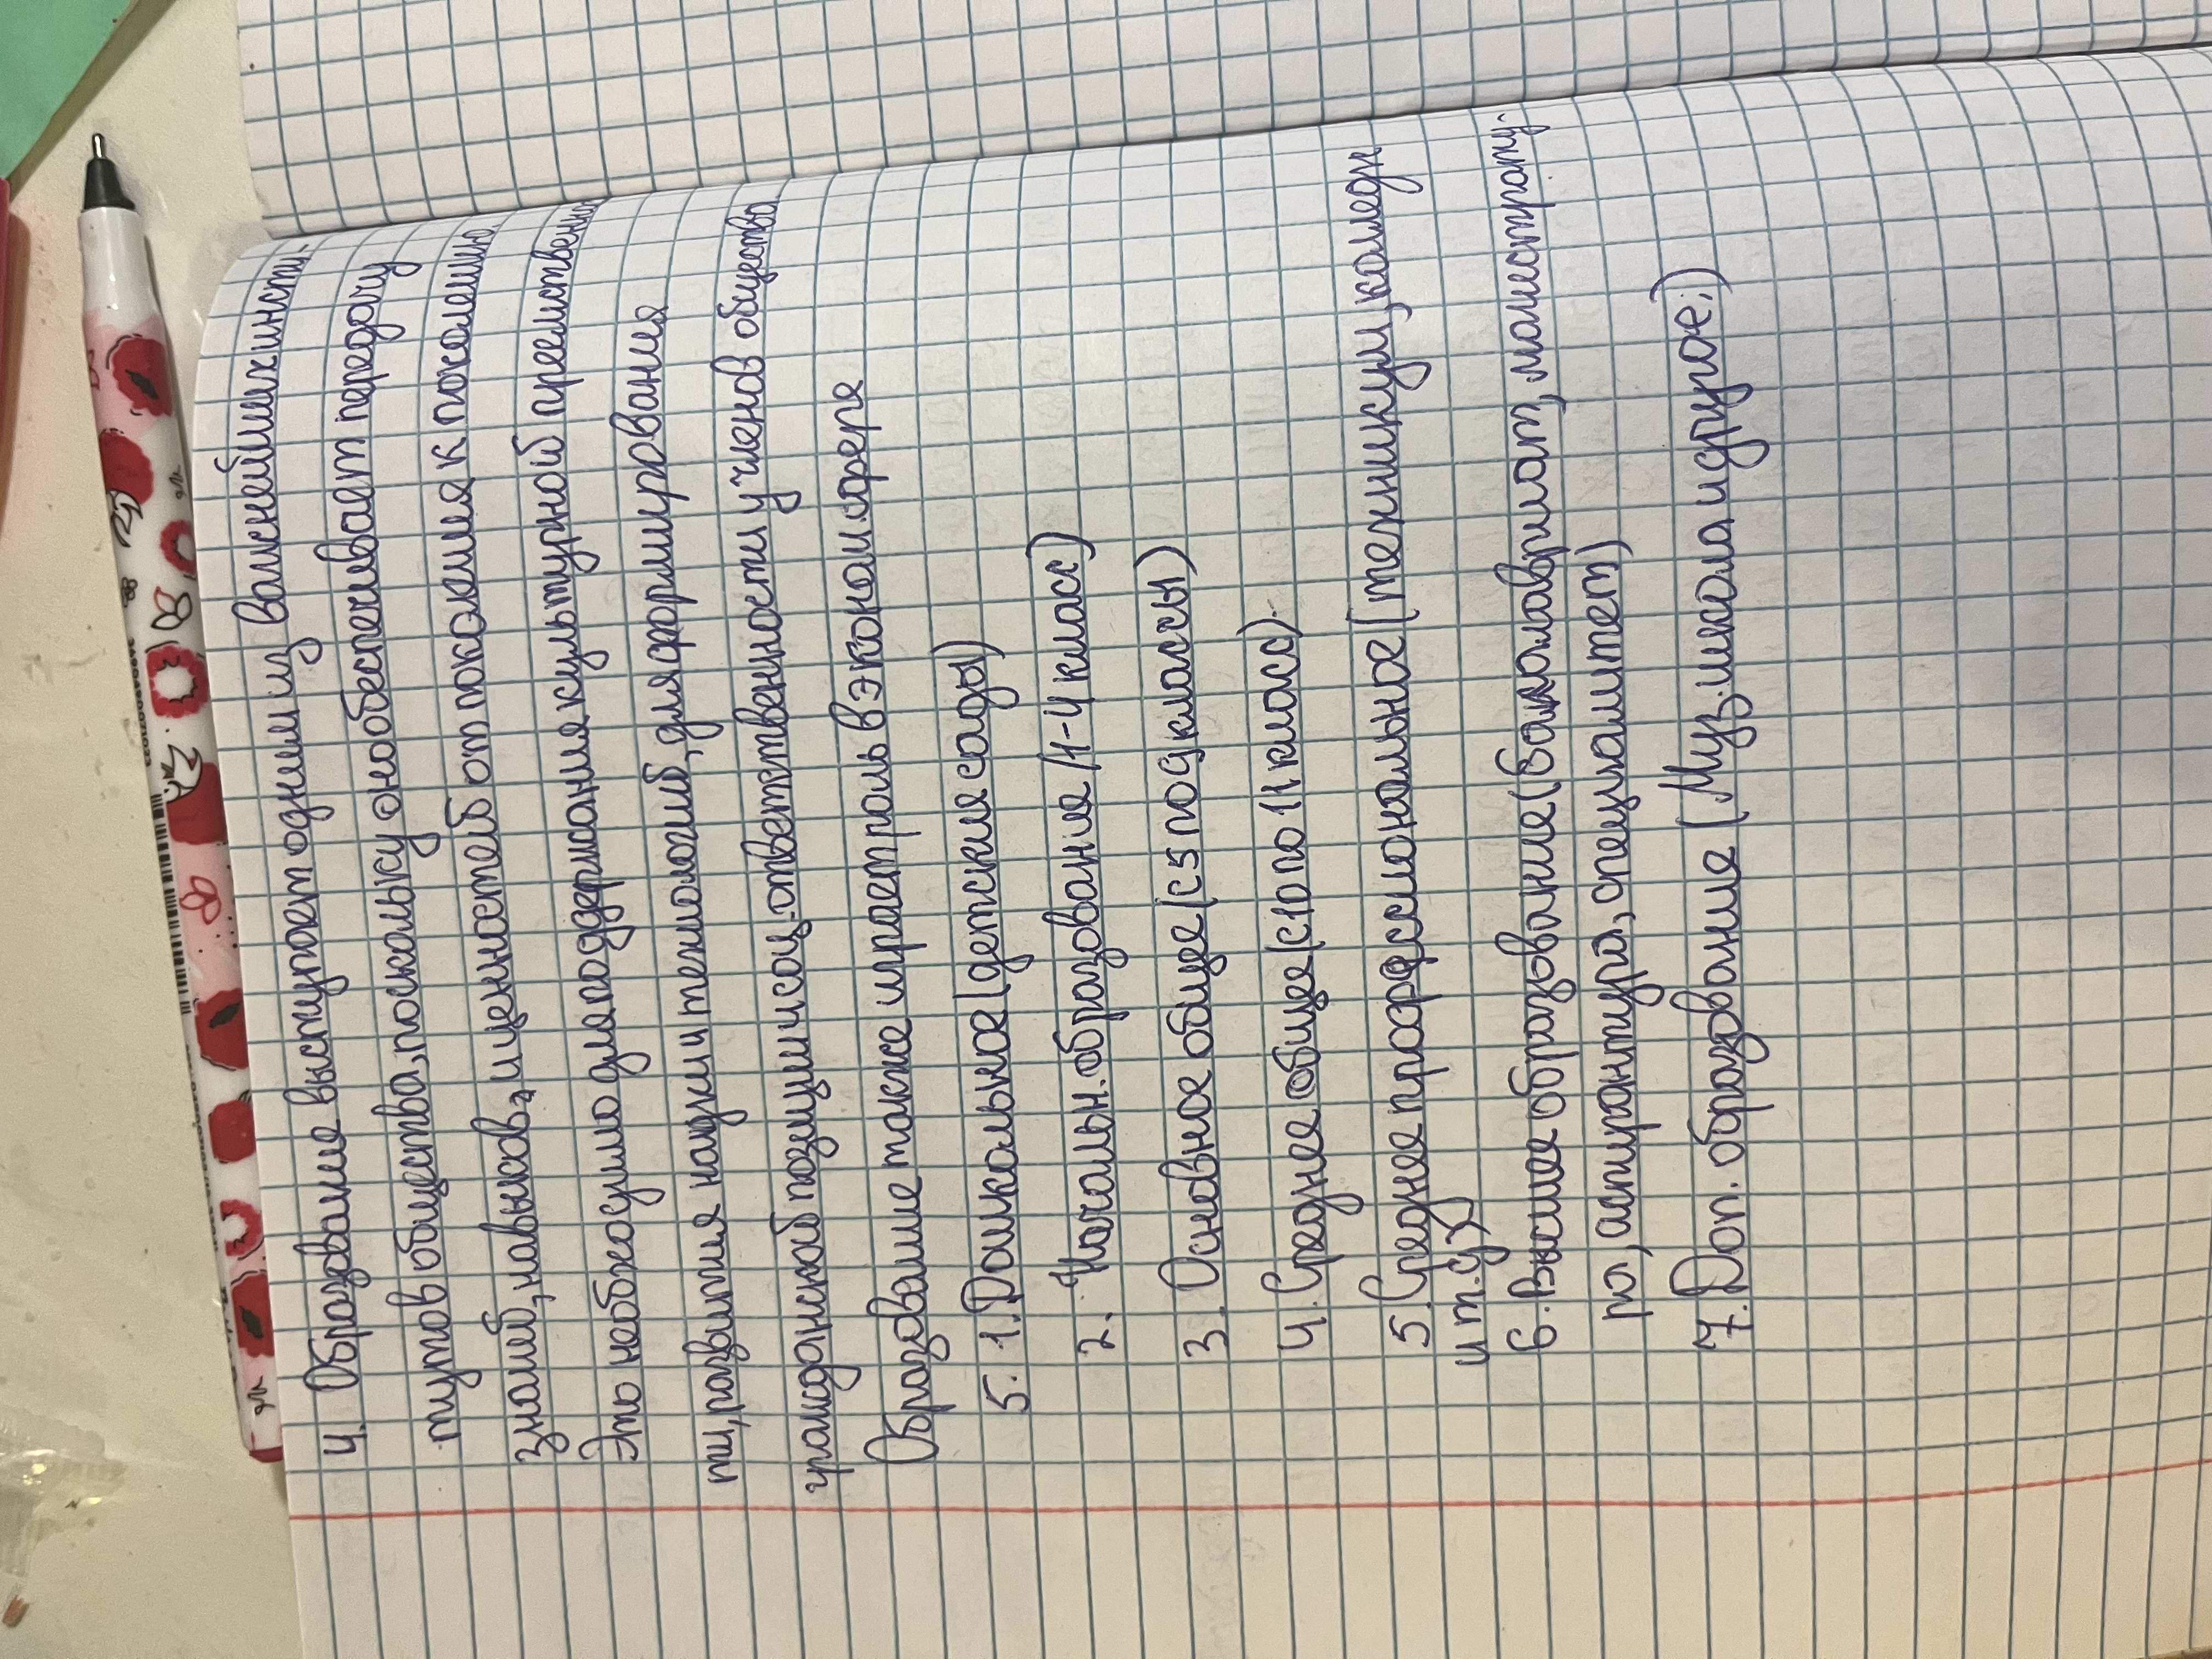 4. Образование выступает одним из важнейших инсти-
тутов общества, поскольку оно обеспечивает передачу
знаний, навыков, и ценностей от поколения к поколению
Это необходимо для поддержания культурной преемственно
ти, развития науки и технологий, для формирования
гражданской позиции и соц. ответственности у членов общества
Образование также играет роль в эконом. сфере
5. 1. Дошкольное (детские сады)
2. Начальн. образование (1-4 класс)
3. Основное общее (с 5 по 9 классы)
4. Среднее общее (с 10 по 11 класс).
5. Среднее профессиональное (техникум, колледж
и т.д.)
6. Высшее образование (бакалавриат, магистрату-
ра, аспирантура, специалитет)
7. Доп. образование (Муз. школа и другое.)